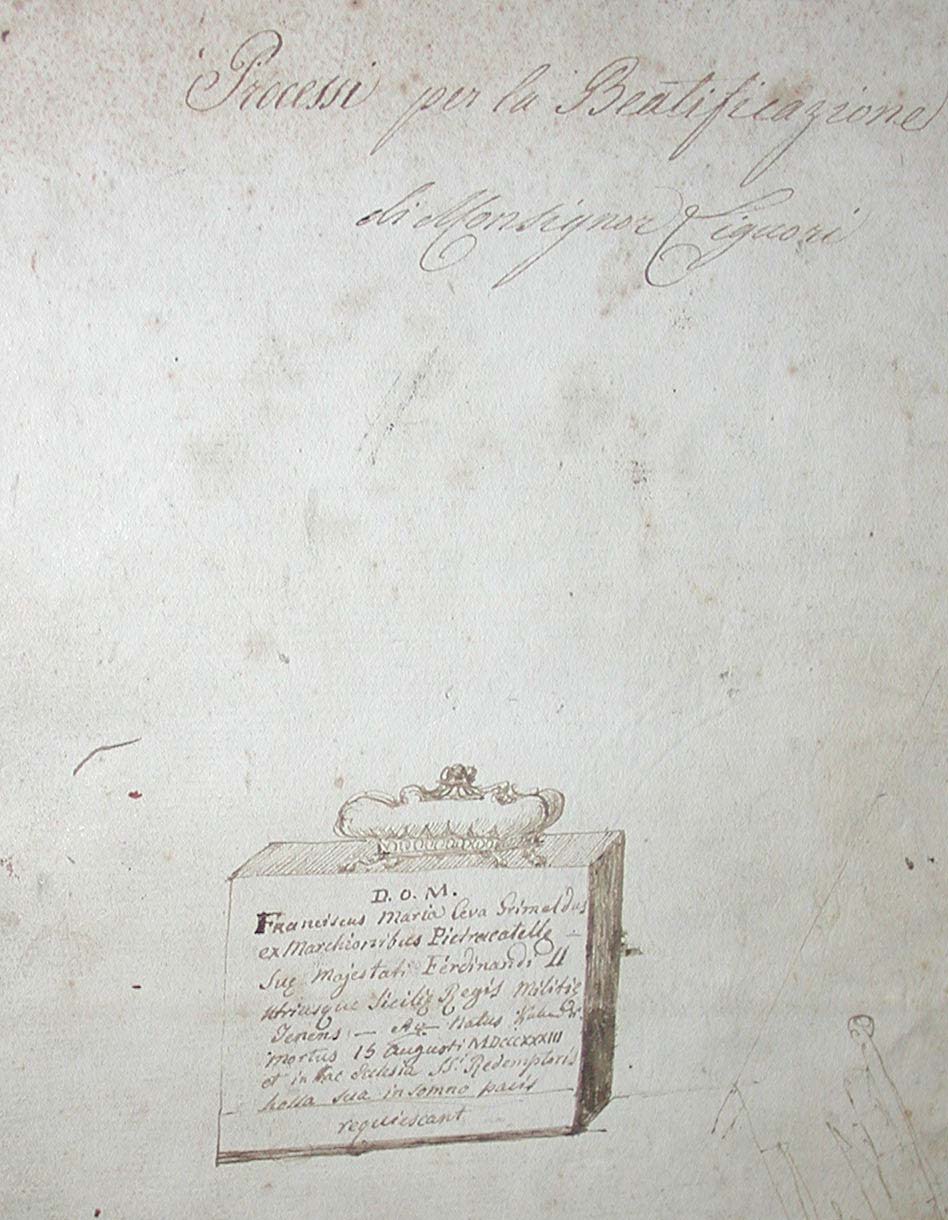 Processi per la Beatificazione
di Monsignor Liguori
D. O. M.
Franciscus Maria Ceva Grimaldus
ex Marchionibus Pietracatelle
Suę Majestati Ferdinandi II
utriusque Sicilię Regis Militię
Tenens — natus
mortus 15 Augusti MDCCCXXXIII
et in hac Ecclesia SS.i Redemptoris
hossa sua in somno pacis
requiescant